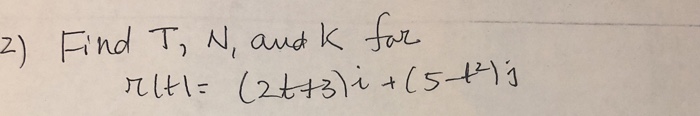 2) Find T, N, and K for
r(t) = (2t+3)i + (5-t²)j